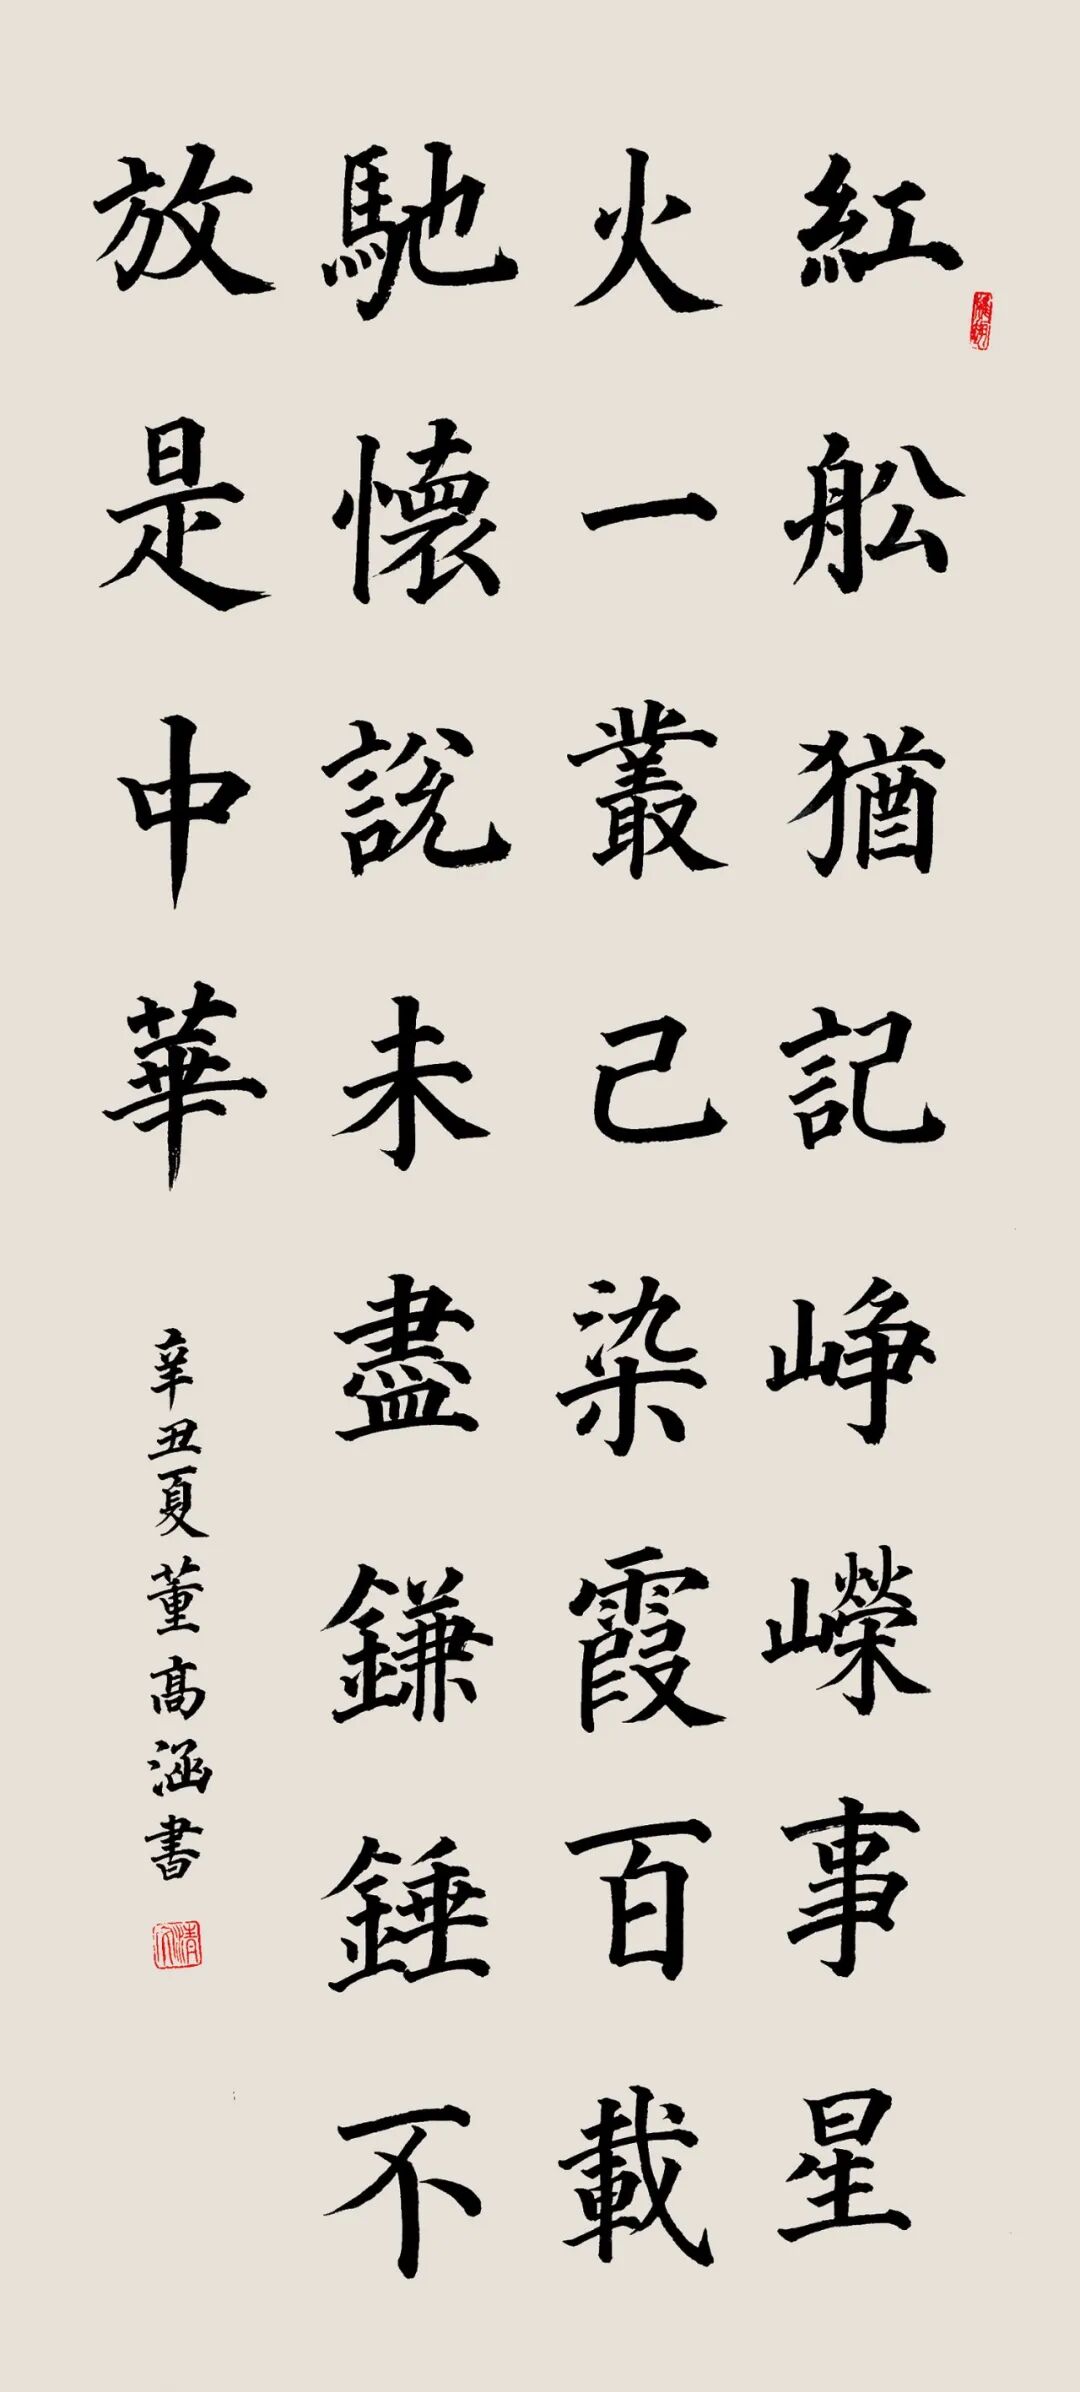 紅舩猶記崢嶸事星
火一叢已染霞百載
馳懷說未盡鎌錘不
放是中華
辛丑夏董高涵書